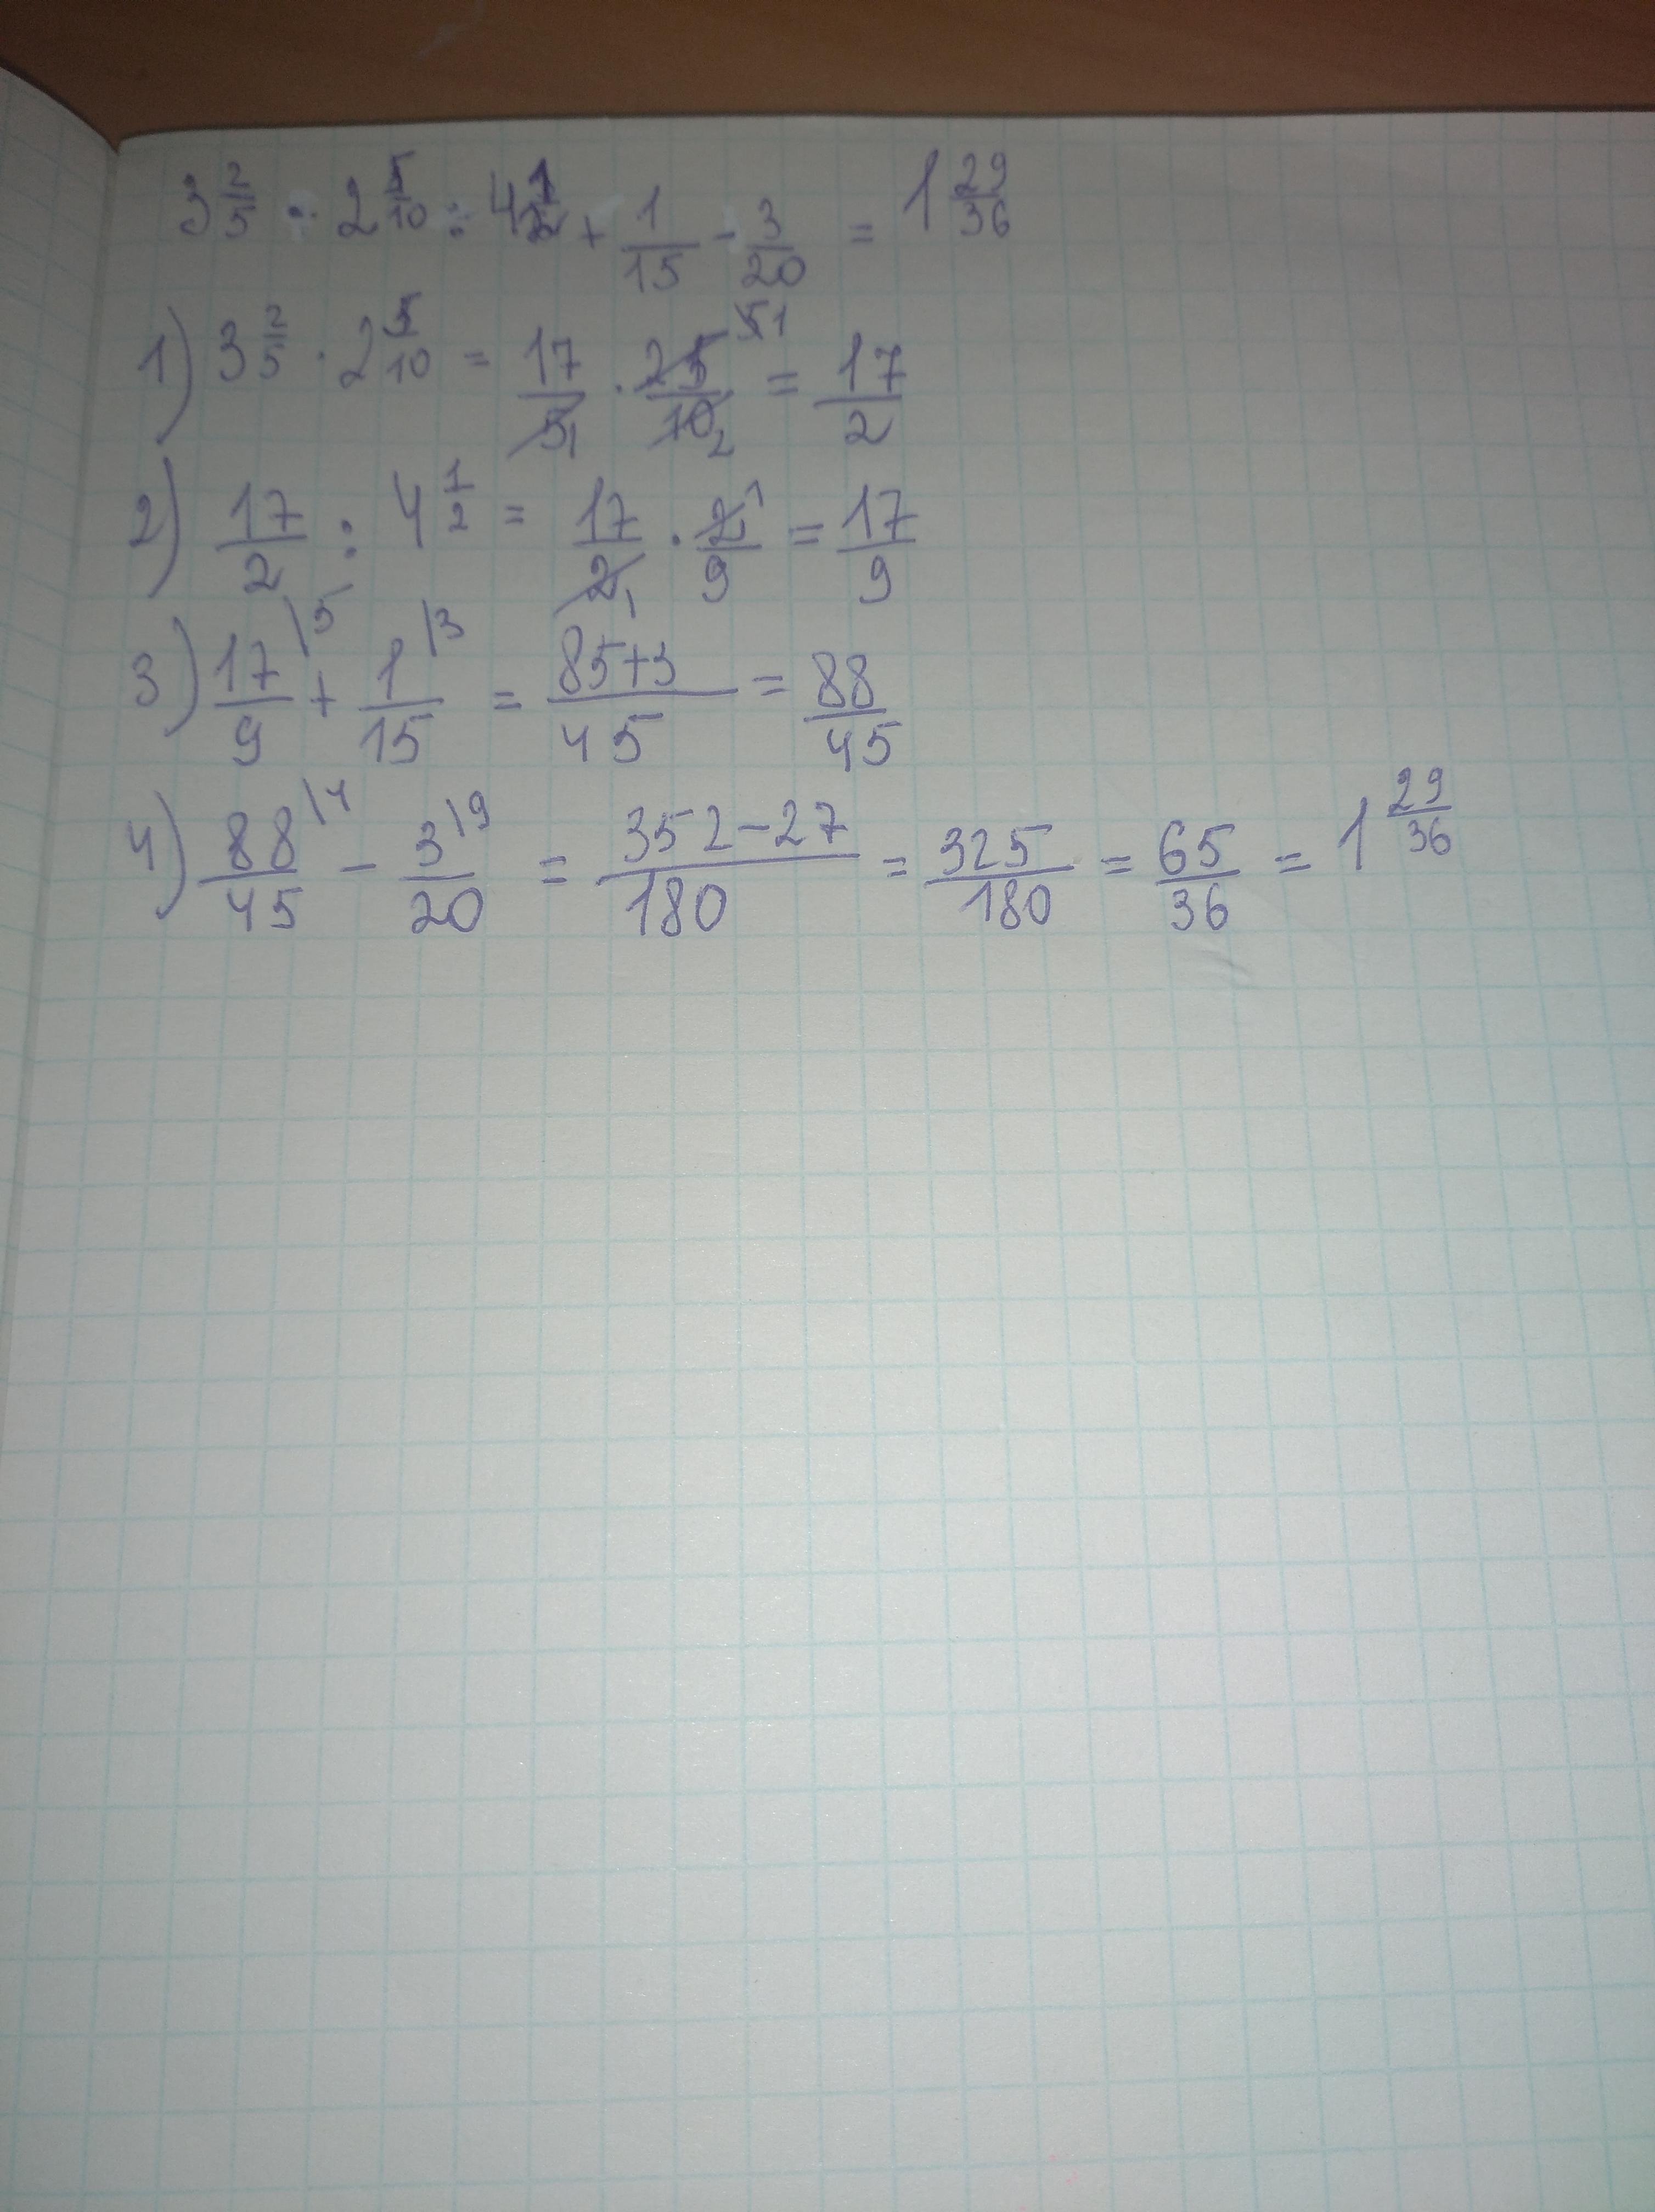 3 2/5 · 2 5/10 : 4 1/2 + 1/15 - 3/20 = 1 29/36
1) 3 2/5 · 2 5/10 = 17/5 1 · 25/10 2 5 1 = 17/2
2) 17/2 : 4 1/2 = 17/2 1 · 2/9 1 = 17/9
3) 17/9 \5 + 1/15 \3 = 85+3/45 = 88/45
4) 88/45 \4 - 3/20 \9 = 352-27/180 = 325/180 = 65/36 = 1 29/36